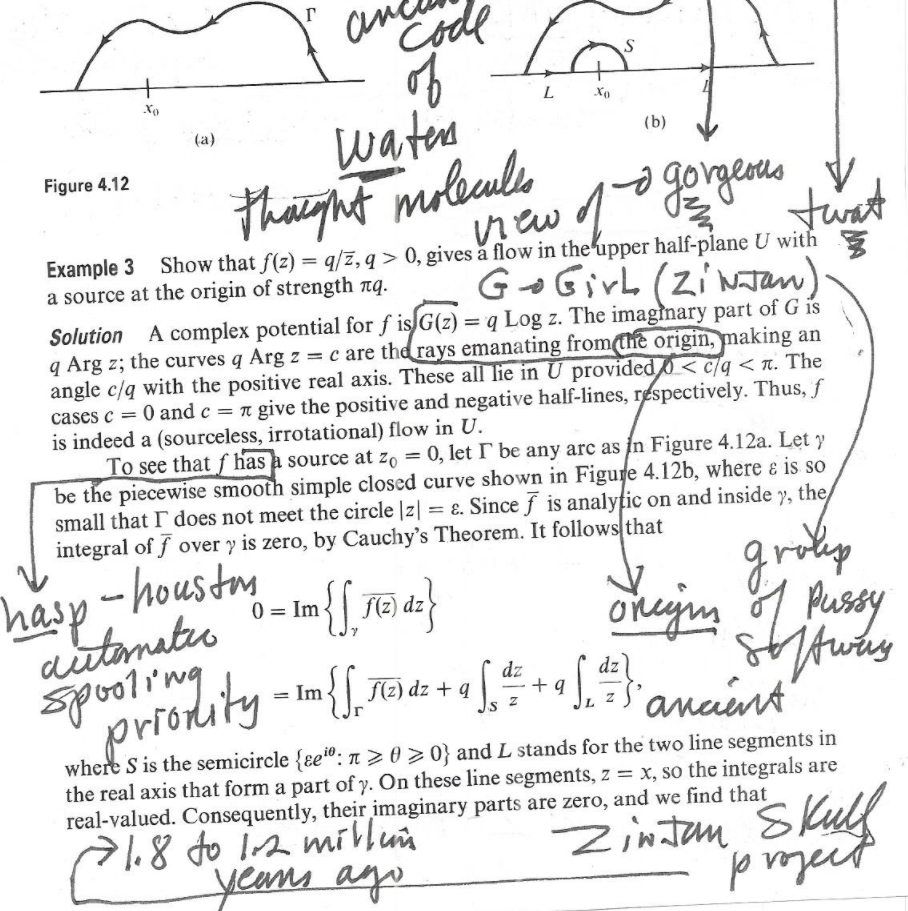 Γ
ancient
code
of
waters
thought molecules
view of → gorgeous
twat
S
x₀
L
x₀
L
(a)
(b)
Figure 4.12
Example 3 Show that f(z) = q/z̅, q > 0, gives a flow in the upper half-plane U with
a source at the origin of strength πq.
G → Girl (ZinJan)
Solution A complex potential for f is G(z) = q Log z. The imaginary part of G is
q Arg z; the curves q Arg z = c are the rays emanating from the origin, making an
angle c/q with the positive real axis. These all lie in U provided 0 < c/q < π. The
cases c = 0 and c = π give the positive and negative half-lines, respectively. Thus, f
is indeed a (sourceless, irrotational) flow in U.
To see that f has a source at z₀ = 0, let Γ be any arc as in Figure 4.12a. Let γ
be the piecewise smooth simple closed curve shown in Figure 4.12b, where ε is so
small that Γ does not meet the circle |z| = ε. Since f̅ is analytic on and inside γ, the
integral of f̅ over γ is zero, by Cauchy's Theorem. It follows that
hasp - houston
automatic
spooling
priority
0 = Im{∫γ f(z)̅ dz}
= Im{∫Γ f(z)̅ dz + q ∫S dz/z + q ∫L dz/z},
origin
ancient
group
of Pussy
Software
where S is the semicircle {εe^{iθ}: π ⩾ θ ⩾ 0} and L stands for the two line segments in
the real axis that form a part of γ. On these line segments, z = x, so the integrals are
real-valued. Consequently, their imaginary parts are zero, and we find that
1.8 to 1.2 million
years ago
ZinJan Skull
project